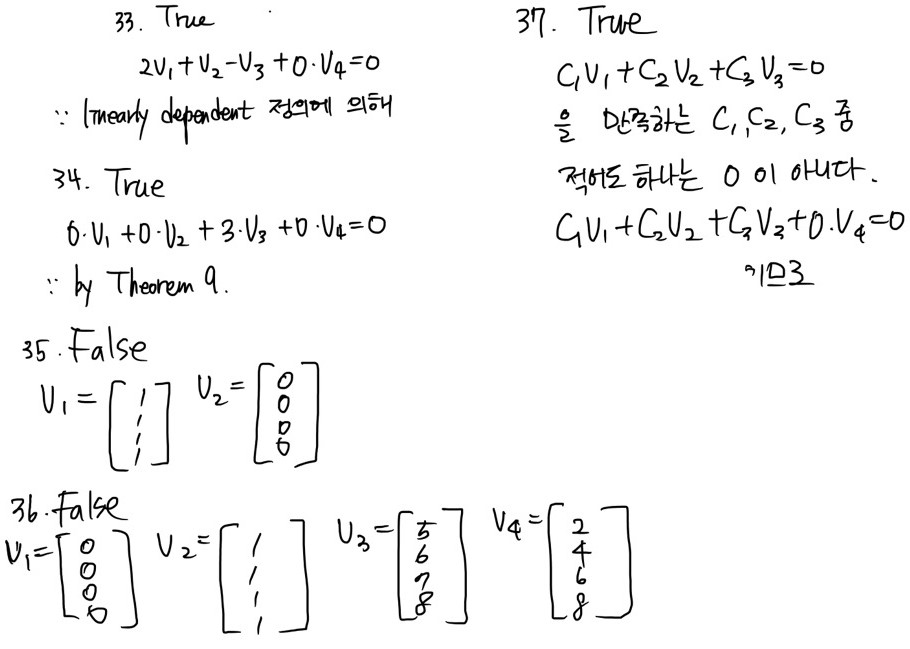 33. True
2V₁+V₂-V₃+0·V₄=0
∵ linearly dependent 정의에 의해
34. True
0·V₁+0·V₂+3·V₃+0·V₄=0
∵ by Theorem 9.
35. False
V₁=[1 1 1 1] V₂=[0 0 0 0]
36. False
V₁=[0 0 0 0] V₂=[1 1 1 1] V₃=[5 6 7 8] V₄=[2 4 6 8]
37. True
C₁V₁+C₂V₂+C₃V₃=0
을 만족하는 C₁,C₂,C₃ 중
적어도 하나는 0 이 아니다.
C₁V₁+C₂V₂+C₃V₃+0.V₄=0
이므로